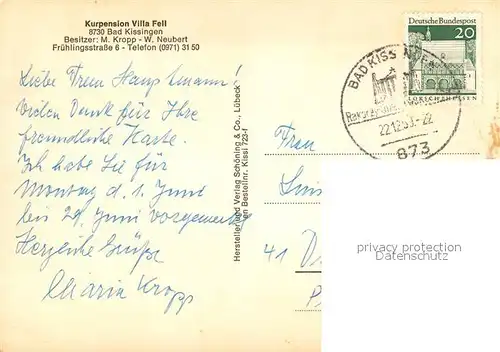 Kurpension Villa Fell
8730 Bad Kissingen
Besitzer: M. Kropp - W. Neubert
Frühlingsstraße 6 - Telefon (0971) 31 50
Liebe Frau Hauptmann!
Vielen Dank für Ihre
freundliche Karte.
Ich habe Sie für
Montag d. 1. Juni
bis 29. Juni vorgemerkt
Herzliche Grüße
Maria Kropp
Hersteller und Verlag Schöning & Co., Lübeck
Bestellnr. Kissi 723-f
Deutsche Bundespost
20
LORSCH/HESSEN
BAD KISSINGEN
22.12.69.-22
873
Frau
41
privacy protection
Datenschutz